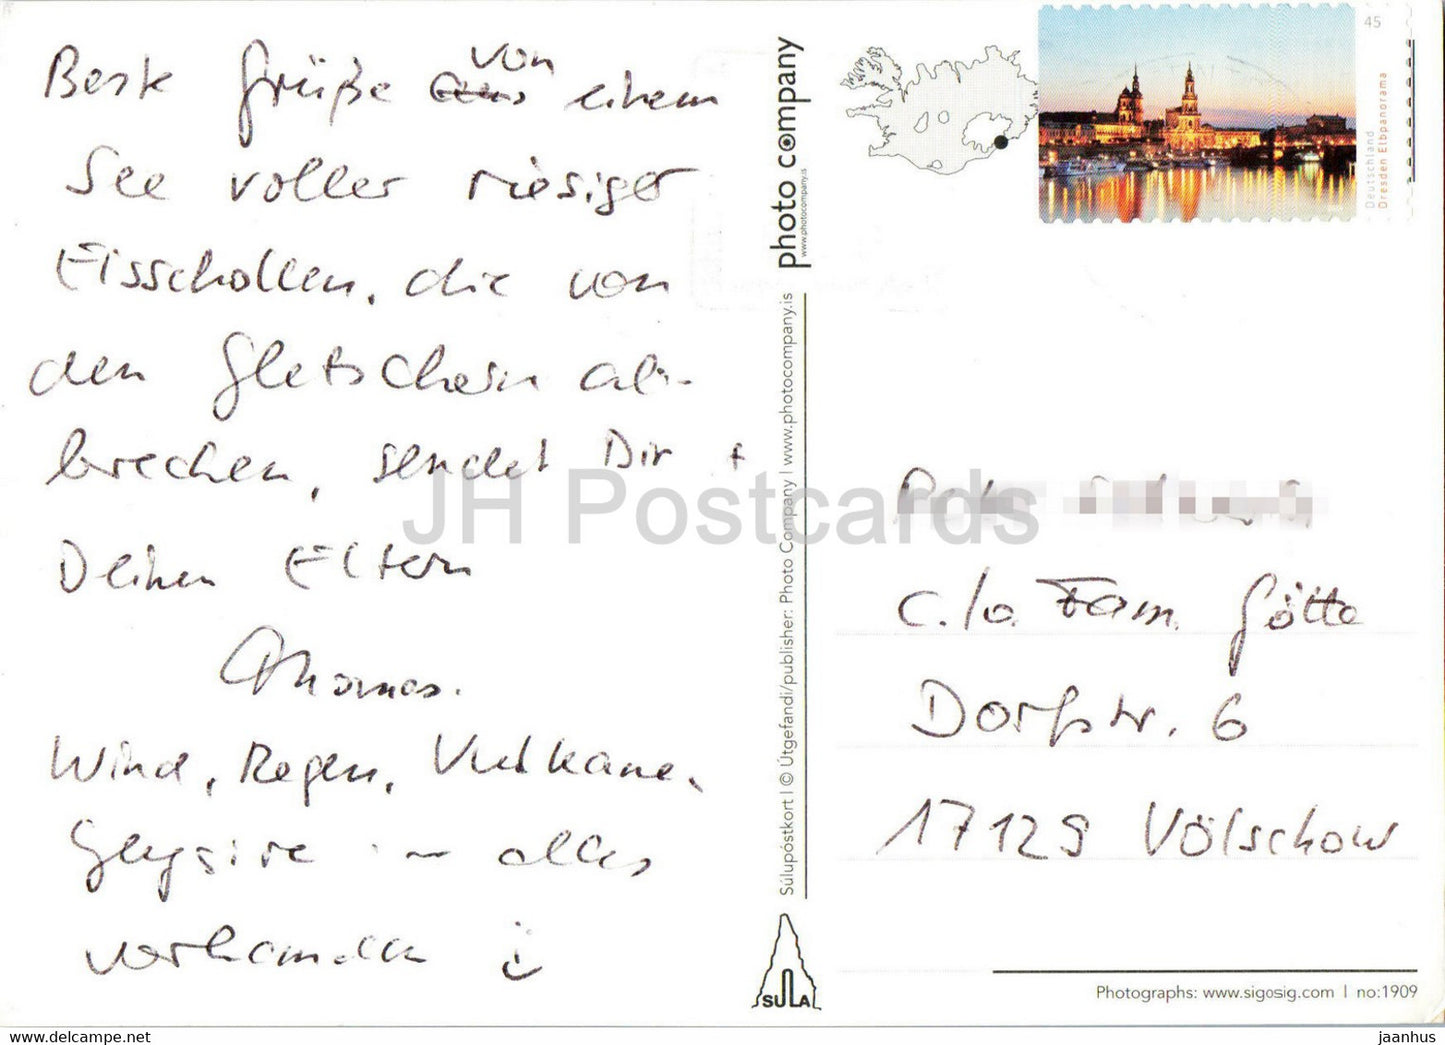 Beste Grüße von einem
See voller riesiger
Eisschollen, die von
den Gletschern ab-
brechen, sendet Dir +
Deinen Eltern
Thomas.
Wind, Regen, Vulkane,
Geysire – alles
vorhanden
photo company
www.photocompany.is
Súlupóstkort I © Útgefandi/publisher: Photo Company I www.photocompany.is
SULA
45
Deutschland
Dresden Elbpanorama
c./o. Fam. Götte
Dorfstr. 6
17129 Völschow
Photographs: www.sigosig.com I no:1909
JH Postcards
eu.delcampe.net
jaanhus